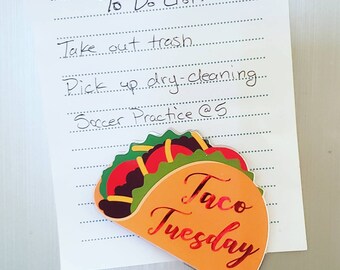 To Do List:
Take out trash
Pick up dry-cleaning
Soccer Practice @5
Taco
Tuesday